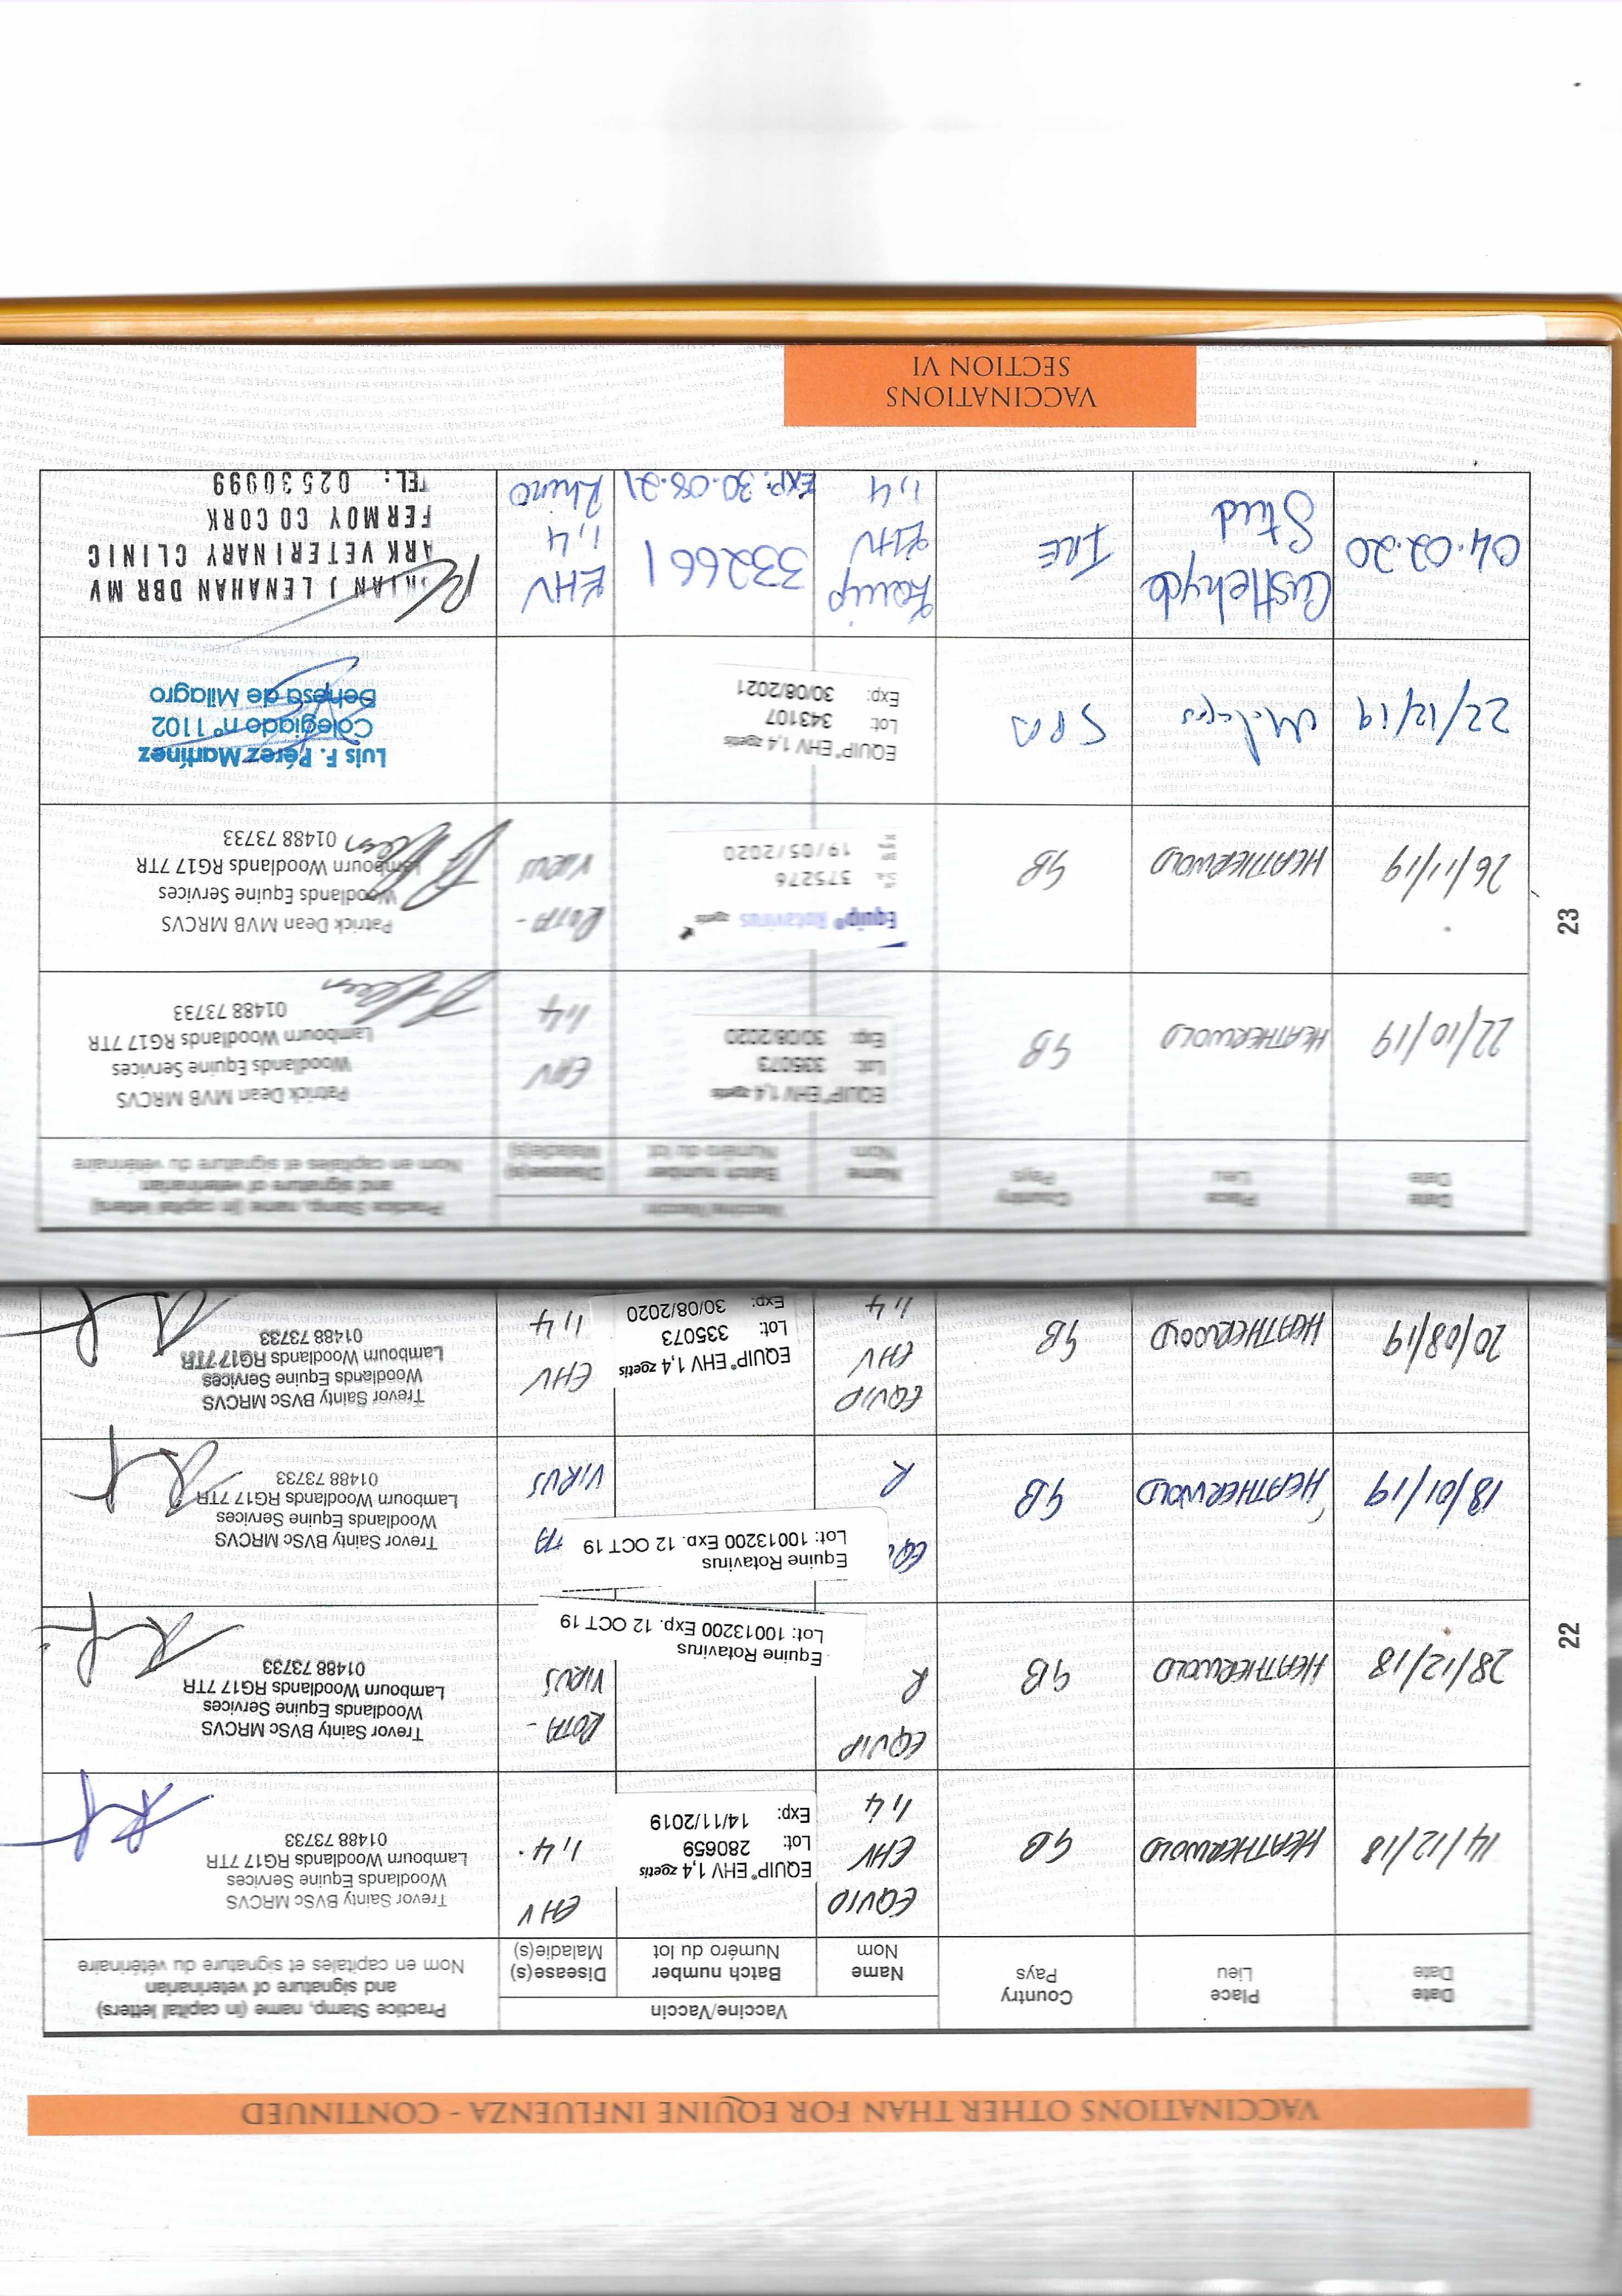 VACCINATIONS OTHER THAN FOR EQUINE INFLUENZA - CONTINUED
Date
Date
Place
Lieu
Country
Pays
Vaccine/Vaccin
Name
Nom
Batch number
Numéro du lot
Disease(s)
Maladie(s)
Practice Stamp, name (in capital letters)
and signature of veterinarian
Nom en capitales et signature du vétérinaire
14/12/18
HEATHERWOLD
GB
EQUIP
EHV
1,4
EQUIP® EHV 1,4 zoetis
Lot: 280659
Exp: 14/11/2019
EHV
1,4.
Trevor Sainty BVSc MRCVS
Woodlands Equine Services
Lambourn Woodlands RG17 7TR
01488 73733
28/12/18
HEATHERWOLD
GB
EQUIP
R
Equine Rotavirus
Lot: 10013200 Exp. 12 OCT 19
ROTA -
VIRUS
Trevor Sainty BVSc MRCVS
Woodlands Equine Services
Lambourn Woodlands RG17 7TR
01488 73733
18/01/19
HEATHERWOLD
GB
R
Equine Rotavirus
Lot: 10013200 Exp. 12 OCT 19
VIRUS
Trevor Sainty BVSc MRCVS
Woodlands Equine Services
Lambourn Woodlands RG17 7TR
01488 73733
20/08/19
HEATHERWOLD
GB
EQUIP
EHV
1,4
EQUIP® EHV 1,4 zoetis
Lot: 335073
Exp: 30/08/2020
EHV
1,4
Trevor Sainty BVSc MRCVS
Woodlands Equine Services
Lambourn Woodlands RG17 7TR
01488 73733
22
Date
Date
Place
Lieu
Country
Pays
Vaccine/Vaccin
Name
Nom
Batch number
Numéro du lot
Disease(s)
Maladie(s)
Practice Stamp, name (in capital letters)
and signature of veterinarian
Nom en capitales et signature du vétérinaire
22/10/19
HEATHERWOLD
GB
EQUIP® EHV 1,4 zoetis
Lot: 335073
Exp: 30/08/2020
EHV
1,4
Patrick Dean MVB MRCVS
Woodlands Equine Services
Lambourn Woodlands RG17 7TR
01488 73733
26/11/19
HEATHERWOLD
GB
Equip® Rotavirus zoetis
375276
19/05/2020
ROTA -
VIRUS
Patrick Dean MVB MRCVS
Woodlands Equine Services
Lambourn Woodlands RG17 7TR
01488 73733
22/12/19
SPA
EQUIP® EHV 1,4 zoetis
Lot: 343107
Exp: 30/08/2021
Luis F. Pérez Martínez
Colegiado nº 1102
Dehesa de Milagro
04.02.20
Castlehyde
Stud
IRE
Equip
EHV
1,4
332661
EXP: 30.08.21
EHV
1,4
Rhino
J LENAHAN DBR MV
ARK VETERINARY CLINIC
FERMOY CO CORK
TEL: 02530999
23
VACCINATIONS
SECTION VI